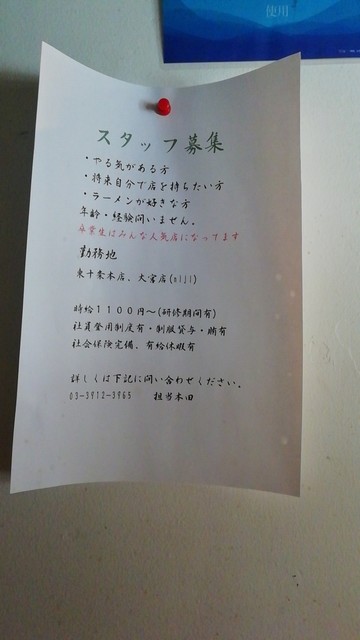 使用
スタッフ募集
・やる気がある方
・将来自分で店を持ちたい方
・ラーメンが好きな方
年齢・経験問いません。
卒業生はみんな人気店になってます
勤務地
東十条本店、大宮店(niji)
時給1100円～(研修期間有)
社員登用制度有・制服貸与・賄有
社会保険完備、有給休暇有
詳しくは下記に問い合わせください。
03-3912-3965 担当本田